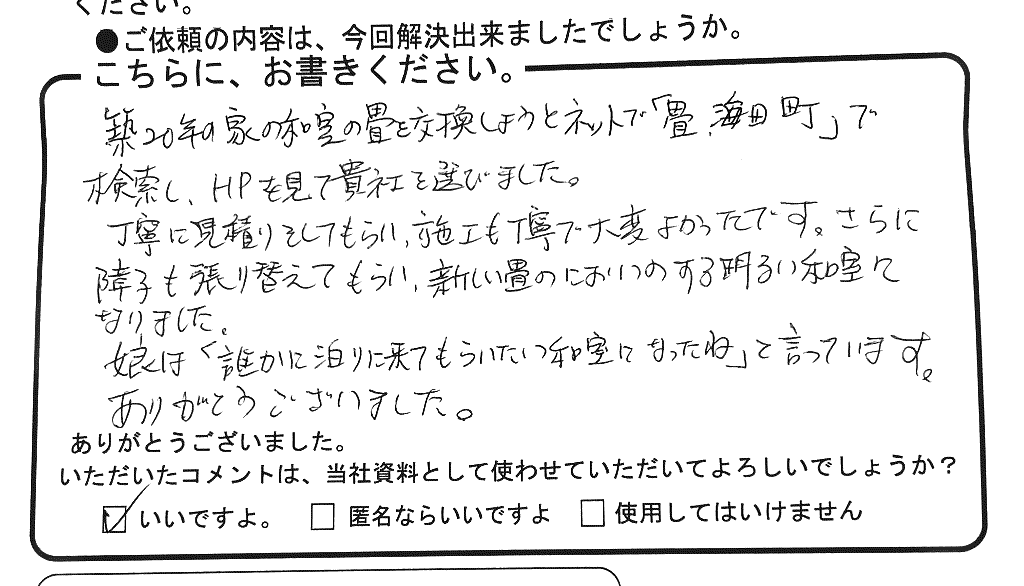 ください。
●ご依頼の内容は、今回解決出来ましたでしょうか。
こちらに、お書きください。
築20年の家の和室の畳を交換しようとネットで「畳、海田町」で
検索し、HPを見て貴社を選びました。
丁寧に見積りをしてもらい、施工も丁寧で大変よかったです。さらに
障子も張り替えてもらい、新しい畳のにおいのする明るい和室に
なりました。
娘は「誰かに泊りに来てもらいたい和室になったね」と言っています。
ありがとうございました。
ありがとうございました。
いただいたコメントは、当社資料として使わせていただいてよろしいでしょうか？
☑ いいですよ。 □ 匿名ならいいですよ □ 使用してはいけません